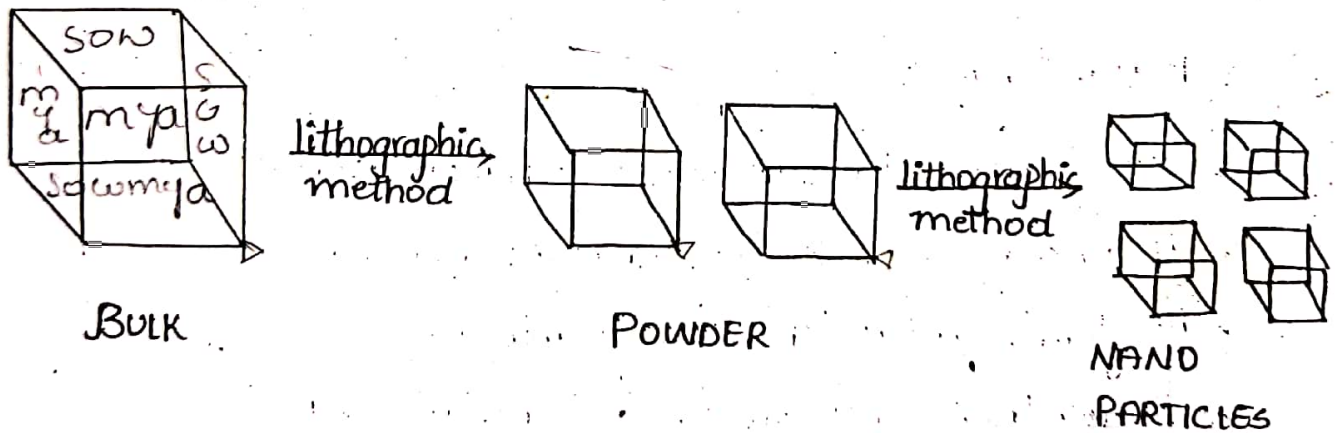 sow
m
y
a
mya
s
o
w
sowmya
lithographic
method
lithographic
method
BULK
POWDER
NANO
PARTICLES